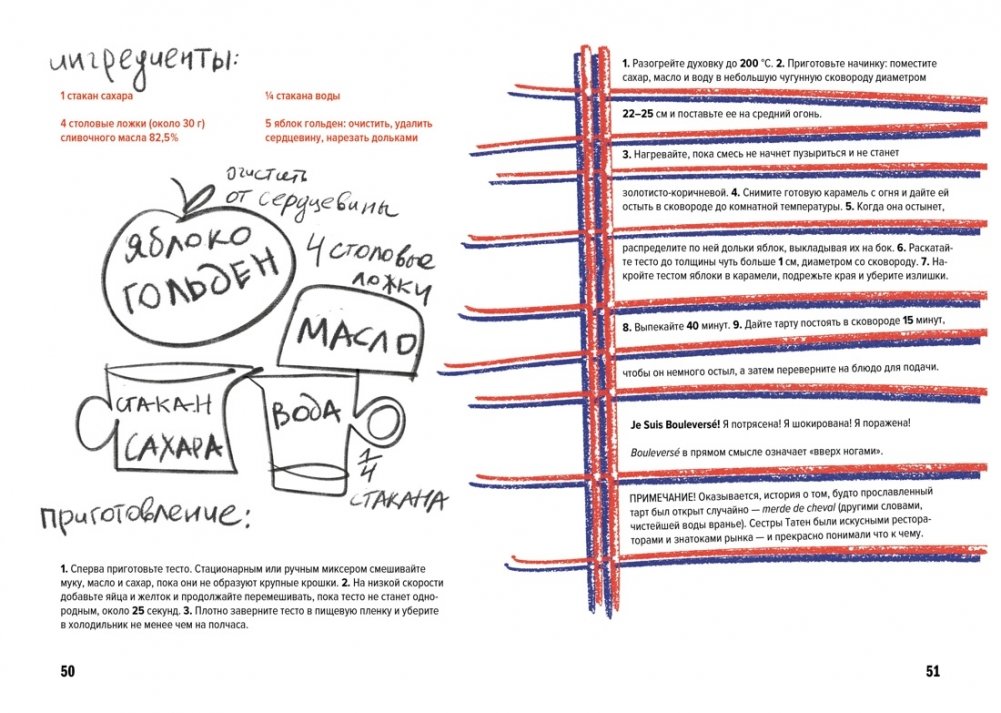 ингредиенты:
1 стакан сахара
4 столовые ложки (около 30 г)
сливочного масла 82,5%
¼ стакана воды
5 яблок гольден: очистить, удалить
сердцевину, нарезать дольками
очистить
от сердцевины
ЯБЛОКО
ГОЛЬДЕН
4 столовые
ложки
МАСЛО
СТАКАН
САХАРА
ВОДА
1/4
СТАКАНА
приготовление:
1. Сперва приготовьте тесто. Стационарным или ручным миксером смешивайте
муку, масло и сахар, пока они не образуют крупные крошки. 2. На низкой скорости
добавьте яйца и желток и продолжайте перемешивать, пока тесто не станет одно-
родным, около 25 секунд. 3. Плотно заверните тесто в пищевую пленку и уберите
в холодильник не менее чем на полчаса.
50
1. Разогрейте духовку до 200 °С. 2. Приготовьте начинку: поместите
сахар, масло и воду в небольшую чугунную сковороду диаметром
22–25 см и поставьте ее на средний огонь.
3. Нагревайте, пока смесь не начнет пузыриться и не станет
золотисто-коричневой. 4. Снимите готовую карамель с огня и дайте ей
остыть в сковороде до комнатной температуры. 5. Когда она остынет,
распределите по ней дольки яблок, выкладывая их на бок. 6. Раскатай-
те тесто до толщины чуть больше 1 см, диаметром со сковороду. 7. На-
кройте тестом яблоки в карамели, подрежьте края и уберите излишки.
8. Выпекайте 40 минут. 9. Дайте тарту постоять в сковороде 15 минут,
чтобы он немного остыл, а затем переверните на блюдо для подачи.
Je Suis Bouleversé! Я потрясена! Я шокирована! Я поражена!
Bouleversé в прямом смысле означает «вверх ногами».
ПРИМЕЧАНИЕ! Оказывается, история о том, будто прославленный
тарт был открыт случайно — merde de cheval (другими словами,
чистейшей воды вранье). Сестры Татен были искусными рестора-
торами и знатоками рынка — и прекрасно понимали что к чему.
51